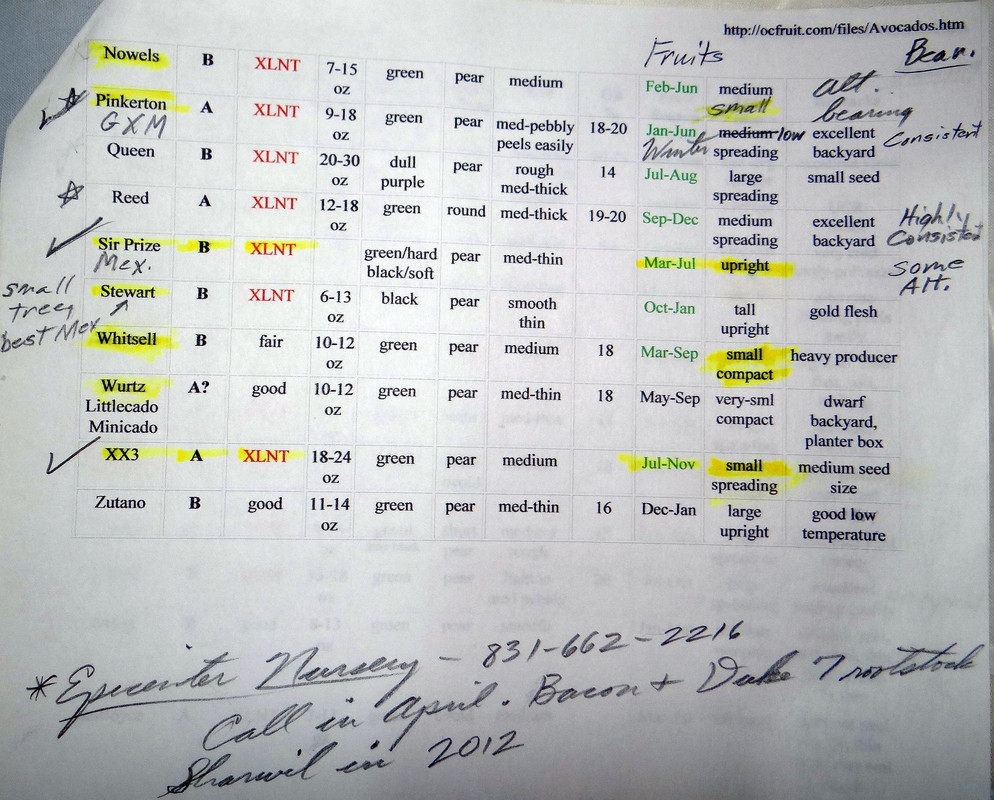 http://ocfruit.com/files/Avocados.htm
Fruits Bear.
Nowels B XLNT 7-15 oz green pear medium Feb-Jun medium Alt. bearing
Pinkerton A XLNT 9-18 oz green pear med-pebbly peels easily 18-20 Jan-Jun small medium low spreading excellent backyard Consistent
GXM Winter
Queen B XLNT 20-30 oz dull purple pear rough med-thick 14 Jul-Aug large spreading small seed
Reed A XLNT 12-18 oz green round med-thick 19-20 Sep-Dec medium spreading excellent backyard Highly Consistent
Sir Prize B XLNT green/hard black/soft pear med-thin Mar-Jul upright Some Alt.
Mex.
small tree, best Mex
Stewart B XLNT 6-13 oz black pear smooth thin Oct-Jan tall upright gold flesh
Whitsell B fair 10-12 oz green pear medium 18 Mar-Sep small compact heavy producer
Wurtz Littlecado Minicado A? good 10-12 oz green pear med-thin 18 May-Sep very-sml compact dwarf backyard, planter box
XX3 A XLNT 18-24 oz green pear medium Jul-Nov small spreading medium seed size
Zutano B good 11-14 oz green pear med-thin 16 Dec-Jan large upright good low temperature
* Epicenter Nursery - 831-662-2216
Call in April. Bacon + Duke 7 rootstock
Sharwil in 2012